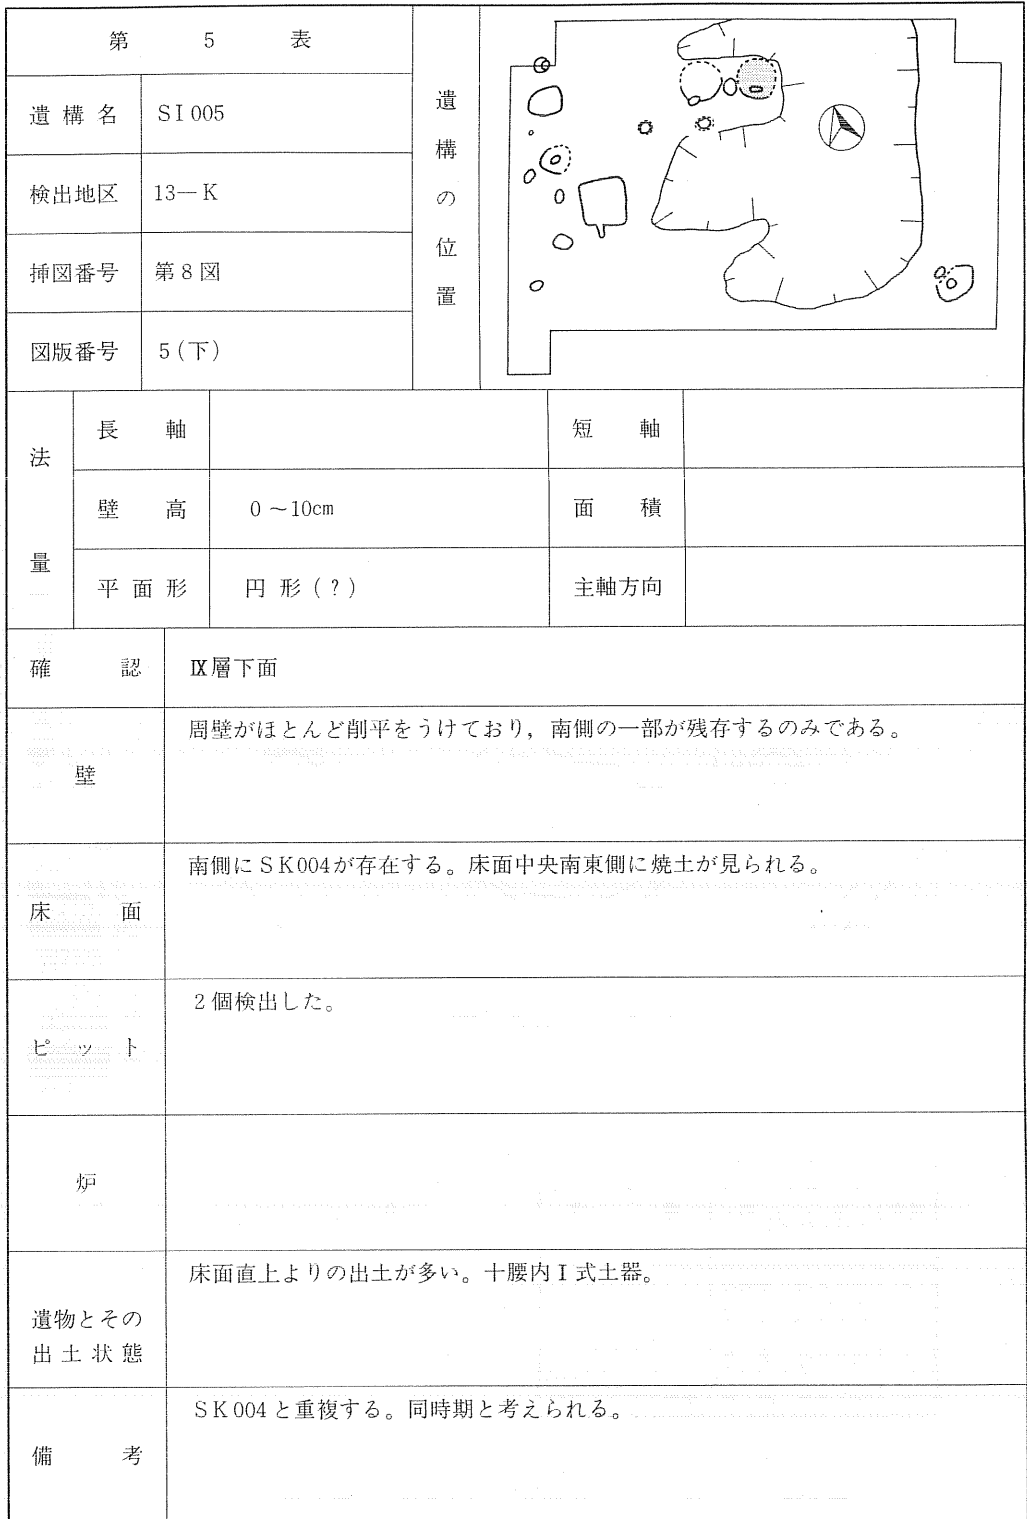 第 5 表
遺構名 SI005
検出地区 13―K
挿図番号 第8図
図版番号 5(下)
遺構の位置
法量
長軸
短軸
壁高 0~10cm
面積
平面形 円形(?)
主軸方向
確認 Ⅸ層下面
壁 周壁がほとんど削平をうけており,南側の一部が残存するのみである。
床面 南側にSK004が存在する。床面中央南東側に焼土が見られる。
ピット 2個検出した。
炉
遺物とその
出土状態
床面直上よりの出土が多い。十腰内Ⅰ式土器。
備考 SK004と重複する。同時期と考えられる。